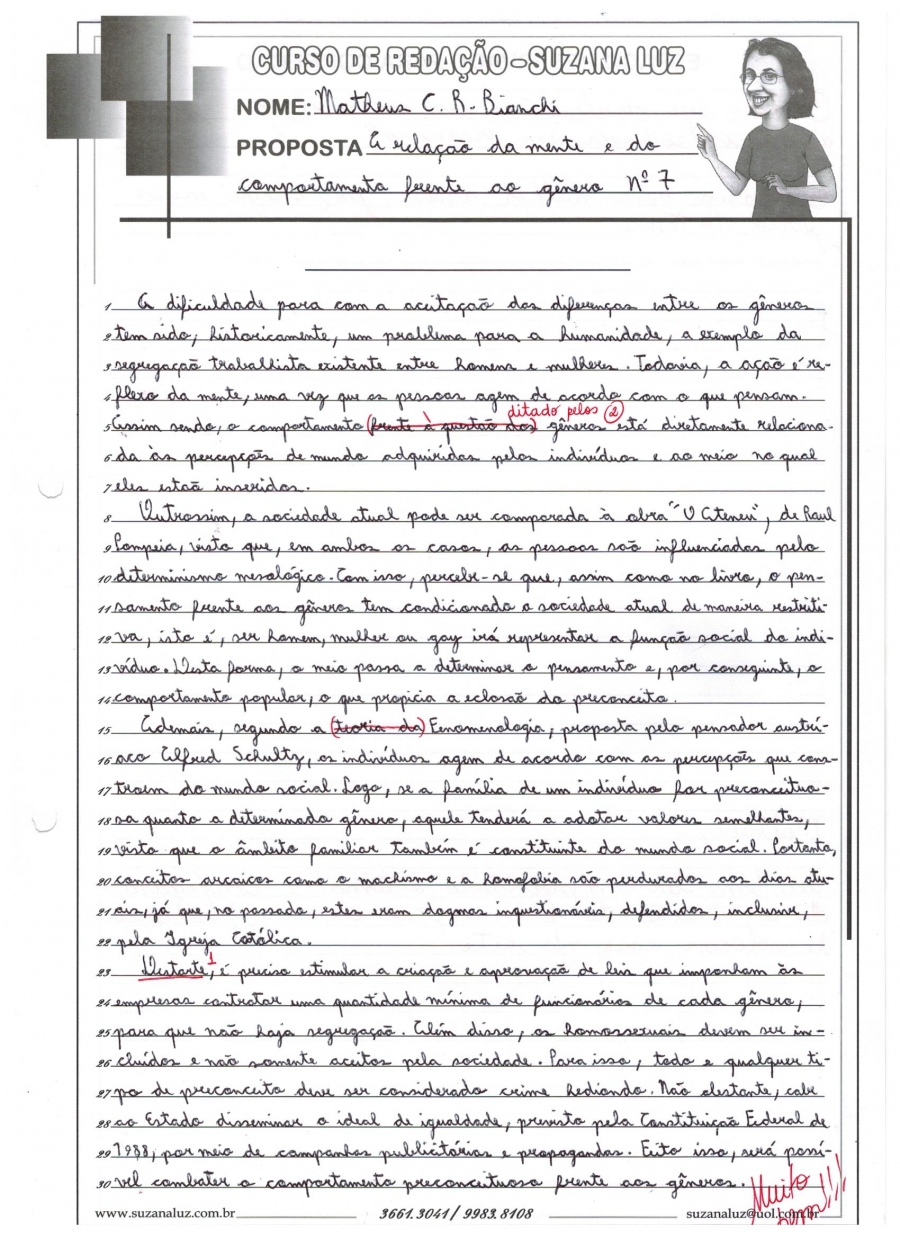 CURSO DE REDAÇÃO - SUZANA LUZ
NOME: Matheus C. R. Bianchi
PROPOSTA A relação da mente e do
comportamento frente ao gênero Nº 7
1 A dificuldade para com a aceitação das diferenças entre os gêneros
2 tem sido, historicamente, um problema para a humanidade, a exemplo da
3 segregação trabalhista existente entre homens e mulheres. Todavia, a ação é re-
4 flexo da mente, uma vez que as pessoas agem de acordo com o que pensam.
ditado pelos 2
5 Assim sendo, o comportamento (frente à questão dos) gêneros está diretamente relaciona-
6 da às percepções de mundo adquiridas pelos indivíduos e ao meio no qual
7 eles estão inseridos.
8 Outrossim, a sociedade atual pode ser comparada à obra "O Ateneu", de Raul
9 Pompeia, visto que, em ambos os casos, as pessoas são influenciadas pelo
10 determinismo mesológico. Com isso, percebe-se que, assim como no livro, o pen-
11 samento frente aos gêneros tem condicionado a sociedade atual de maneira restriti-
12 va, isto é, ser homem, mulher ou gay irá representar a função social do indi-
13 víduo. Desta forma, o meio passa a determinar o pensamento e, por conseguinte, o
14 comportamento popular, o que propicia a eclosão do preconceito.
15 Ademais, segundo a (teoria da) Fenomenologia, proposta pelo pensador austrí-
16 aco Alfred Schultz, os indivíduos agem de acordo com as percepções que cons-
17 troem do mundo social. Logo, se a família de um indivíduo for preconceituo-
18 sa quanto a determinado gênero, aquele tenderá a adotar valores semelhantes,
19 visto que o âmbito familiar também é constituinte do mundo social. Portanto,
20 conceitos arcaicos como o machismo e a homofobia são perdurados aos dias atu-
21 ais, já que, no passado, estes eram dogmas inquestionáveis, defendidos, inclusive,
22 pela Igreja Católica.
23 Destarte, 1 é preciso estimular a criação e aprovação de leis que imponham às
24 empresas contratar uma quantidade mínima de funcionários de cada gênero,
25 para que não haja segregação. Além disso, os homossexuais devem ser in-
26 cluídos e não somente aceitos pela sociedade. Para isso, todo e qualquer ti-
27 po de preconceito deve ser considerado crime hediondo. Não obstante, cabe
28 ao Estado disseminar o ideal de igualdade, previsto pela Constituição Federal de
29 1988, por meio de campanhas publicitárias e propagandas. Feito isso, será possí-
30 vel combater o comportamento preconceituoso frente aos gêneros.
Muito bem!!!
www.suzanaluz.com.br 3661.3041 / 9983.8108 suzanaluz@uol.com.br